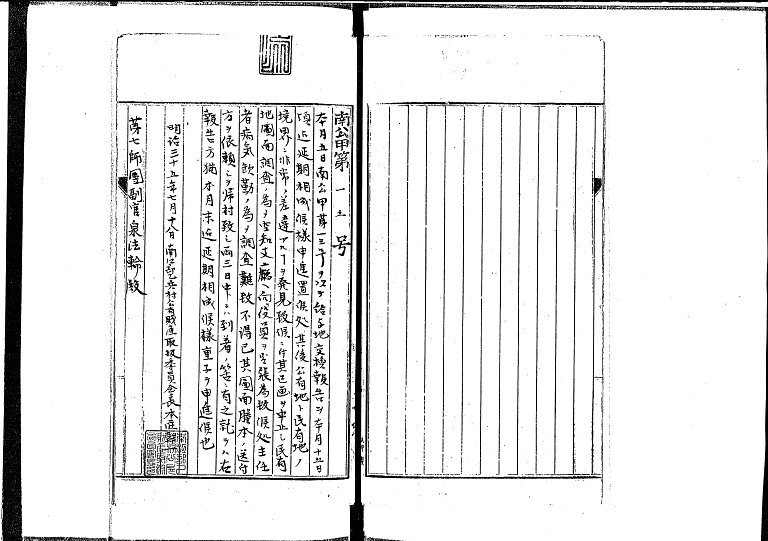 南公甲第一二号
本月五日南公甲第一三号ヲ以テ給与地交換報告ヲ本月十五日
頃迄延期相成候様申進置候処其後公有地ト民有地ノ
境界ニ非常ノ差違アル丁ヲ発見致候ニ付其区画ヲ申立シ民有
地図面調査ノ為メ空知支廳ヘ向役員ヲ出張為致候処主任
者病気欠勤ノ為メ調査難致不得已其図面謄本ノ送付
方ヲ依頼シテ帰村致シ両三日中ニハ到着ノ筈ニ有之就テハ右
報告方猶本月末迄延期相成候様重子テ申進候也
明治三十五年七月十八日 南江部乙兵村公有財産取扱委員会長本庄
第七師團副官泉法輪殿